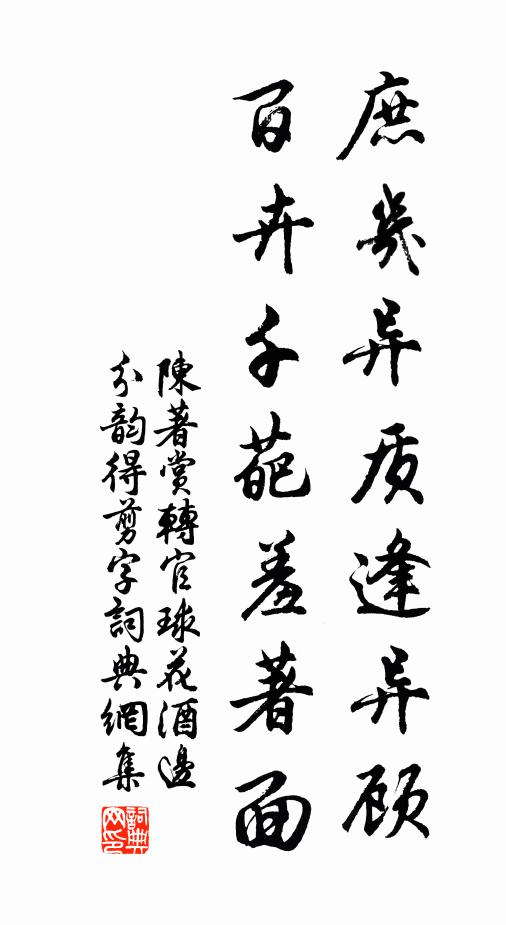 庶几异质逢异顾
百卉千葩羞著面
陳著賞轉官球花酒邊
分韵得剪字詞典網集
詞典
网印